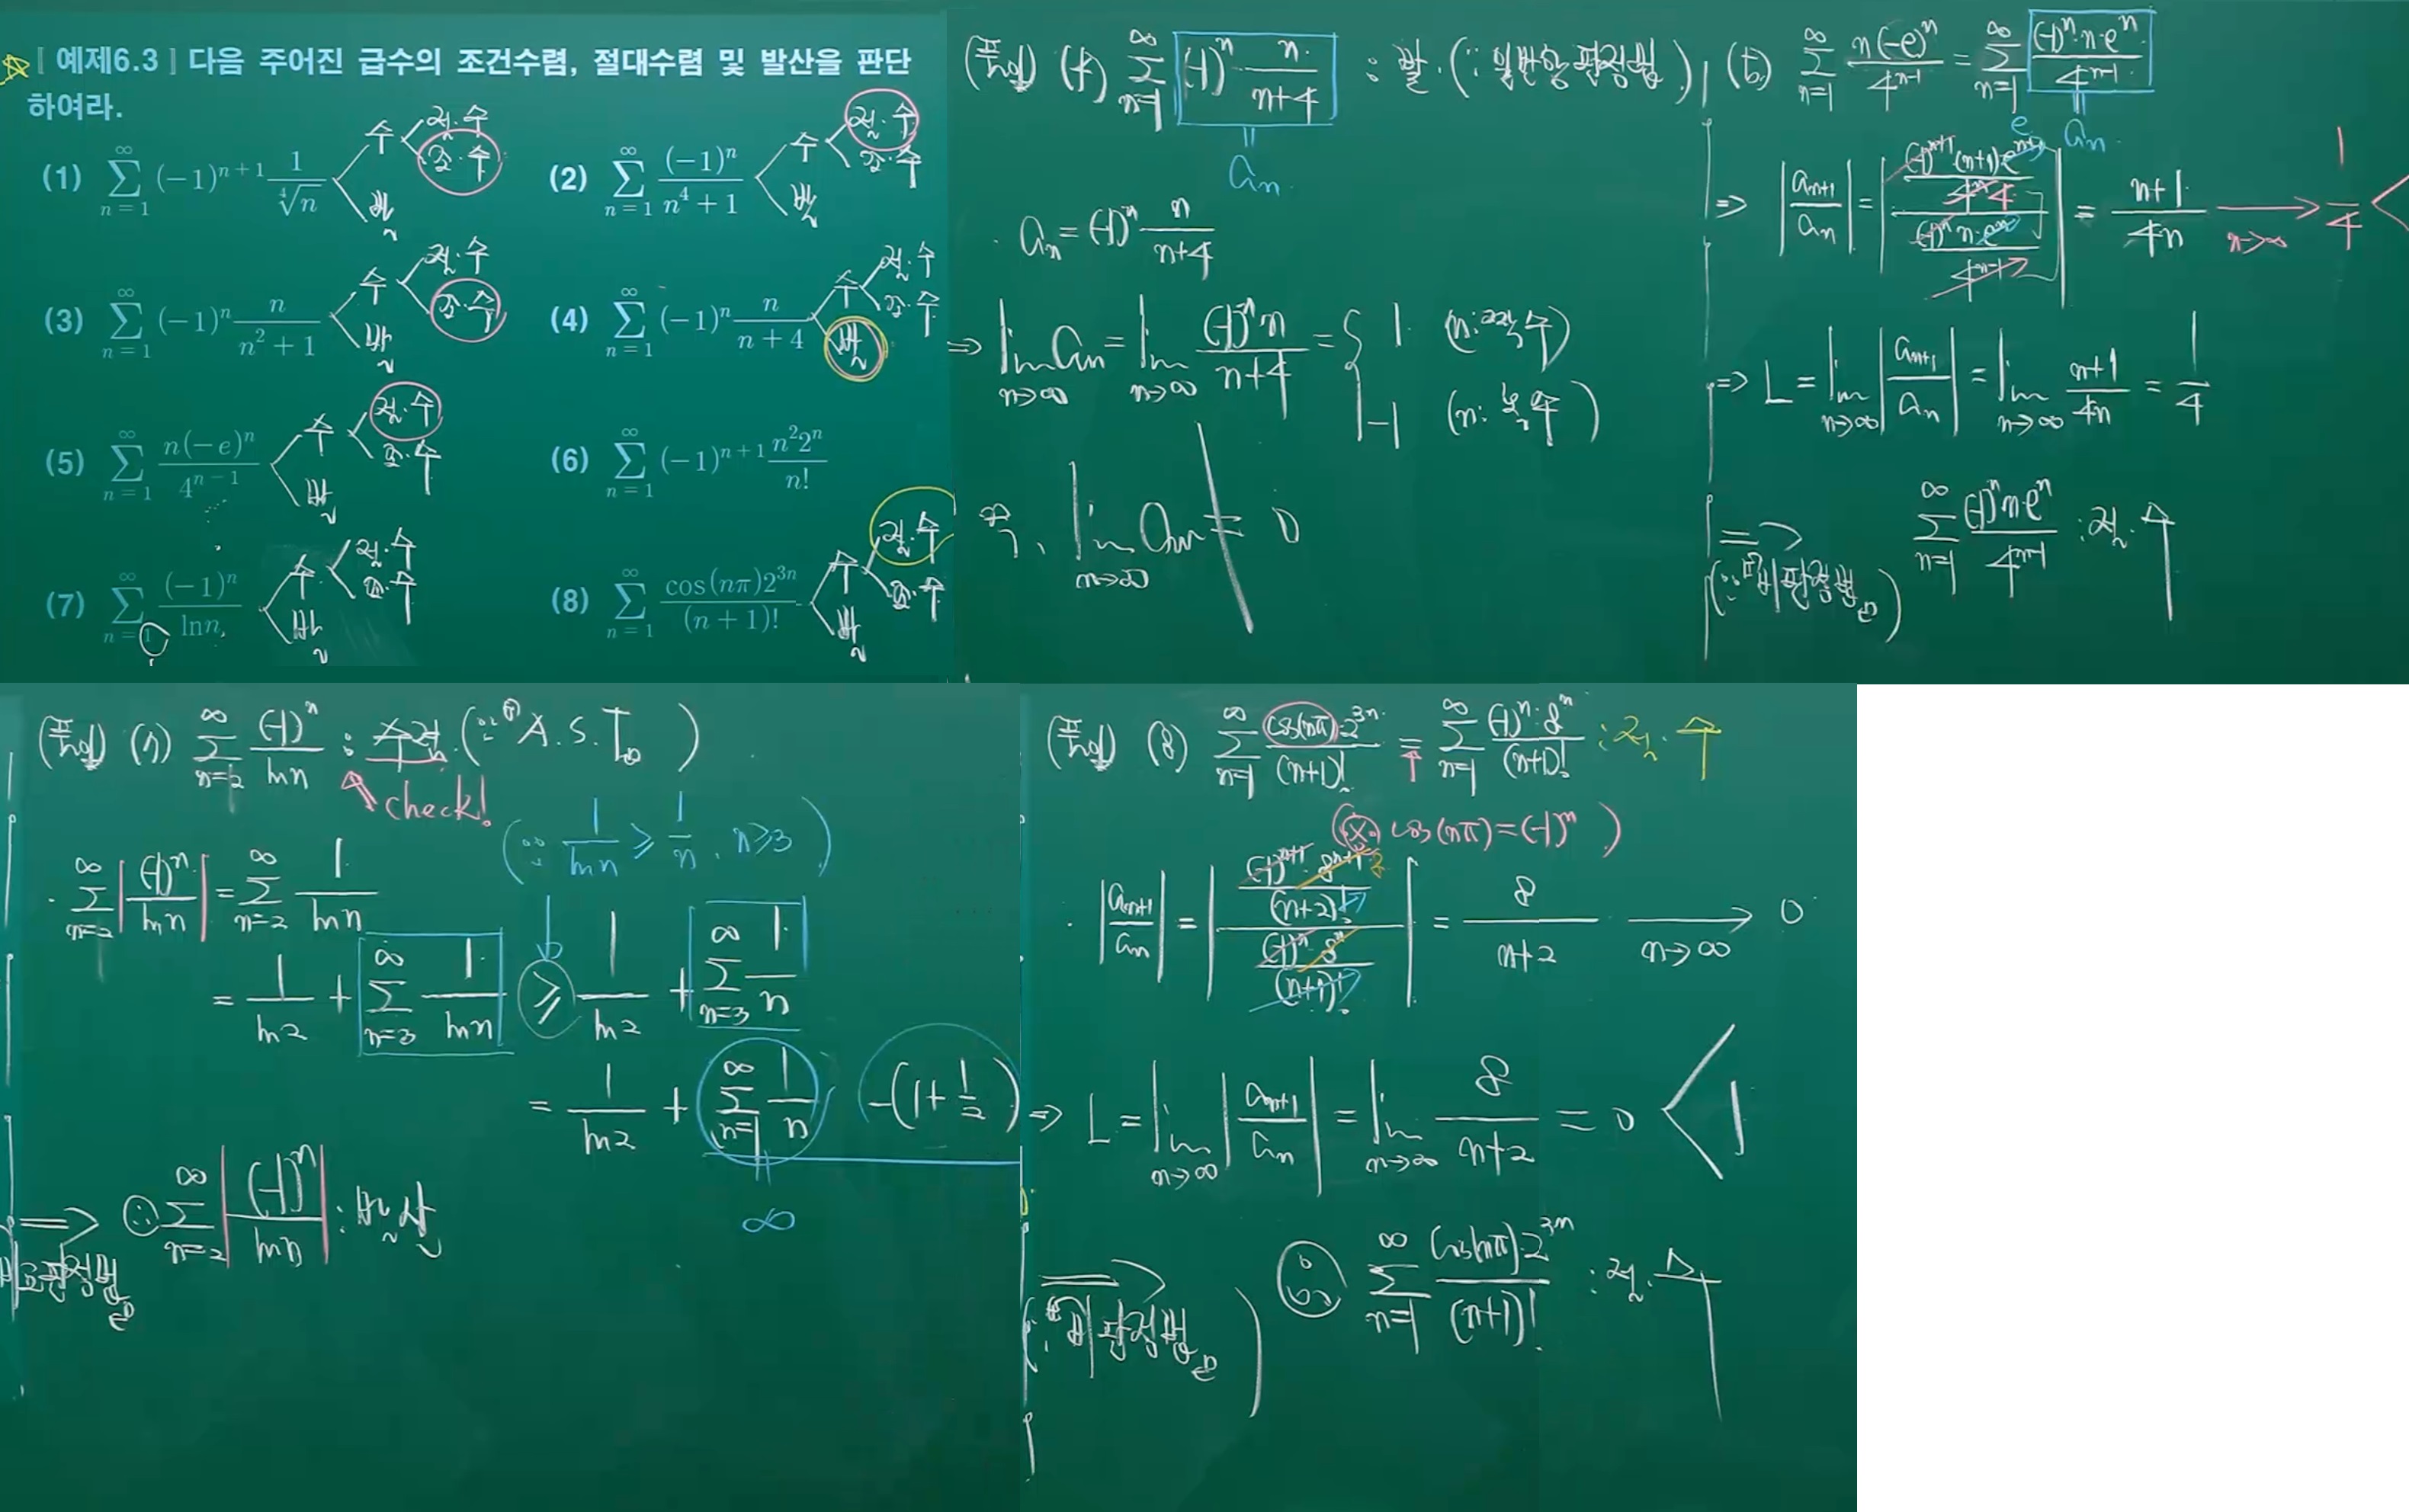 [ 예제6.3 ] 다음 주어진 급수의 조건수렴, 절대수렴 및 발산을 판단
하여라.
(1) ∑_{n=1}^{∞} (-1)^{n+1} 1/⁴√n 수 절·수 조·수 발
(2) ∑_{n=1}^{∞} (-1)^n/(n^4+1) 수 절·수 조·수 발
(3) ∑_{n=1}^{∞} (-1)^n n/(n^2+1) 수 절·수 조·수 발
(4) ∑_{n=1}^{∞} (-1)^n n/(n+4) 수 절·수 조·수 발
(5) ∑_{n=1}^{∞} n(-e)^n/4^{n-1} 수 절·수 조·수 발
(6) ∑_{n=1}^{∞} (-1)^{n+1} n^2 2^n/n!
(7) ∑_{n=1}^{∞} (-1)^n/ln n 수 절·수 조·수 발
(8) ∑_{n=1}^{∞} cos(nπ)2^{3n}/(n+1)! 수 절·수 조·수 발
(풀이) (4) ∑_{n=1}^{∞} (-1)^n n/(n+4) : 발. (∵ 일반항 판정법)
a_n
· a_n = (-1)^n n/(n+4)
⇒ lim_{n→∞} a_n = lim_{n→∞} (-1)^n n/(n+4) = { 1 (n: 짝수)
-1 (n: 홀수)
즉, lim_{n→∞} a_n ≠ 0
(5) ∑_{n=1}^{∞} n(-e)^n/4^{n-1} = ∑_{n=1}^{∞} (-1)^n·n·e^n/4^{n-1}
a_n
⇒ |a_{n+1}/a_n| = |((-1)^{n+1}(n+1)·e^{n+1}/4^n·4)/((-1)^n n·e^n/4^{n-1})| = n+1/4n →_{n→∞} 1/4 <
⇒ L = lim_{n→∞} |a_{n+1}/a_n| = lim_{n→∞} n+1/4n = 1/4
⇒ ∑_{n=1}^{∞} (-1)^n n·e^n/4^{n-1} : 절·수
(∵ 비판정법)
(풀이) (7) ∑_{n=2}^{∞} (-1)^n/ln n : 수렴. (∵ A.S.T)
check!
· ∑_{n=2}^{∞} |(-1)^n/ln n| = ∑_{n=2}^{∞} 1/ln n
(∵ 1/ln n ≥ 1/n, n≥3)
= 1/ln2 + ∑_{n=3}^{∞} 1/ln n ≥ 1/ln2 + ∑_{n=3}^{∞} 1/n
= 1/ln2 + ∑_{n=1}^{∞} 1/n -(1+1/2)
∞
⇒ ∴ ∑_{n=2}^{∞} |(-1)^n/ln n| : 발산
비교판정법
(풀이) (8) ∑_{n=1}^{∞} cos(nπ)·2^{3n}/(n+1)! = ∑_{n=1}^{∞} (-1)^n·8^n/(n+1)! : 절·수
(※ cos(nπ)=(-1)^n)
· |a_{n+1}/a_n| = |((-1)^{n+1}·8^{n+1}/(n+2)!)/((-1)^n·8^n/(n+1)!)| = 8/n+2 →_{n→∞} 0
⇒ L = lim_{n→∞} |a_{n+1}/a_n| = lim_{n→∞} 8/n+2 = 0 < 1
⇒ ∴ ∑_{n=1}^{∞} cos(nπ)·2^{3n}/(n+1)! : 절·수
(∵ 비판정법)